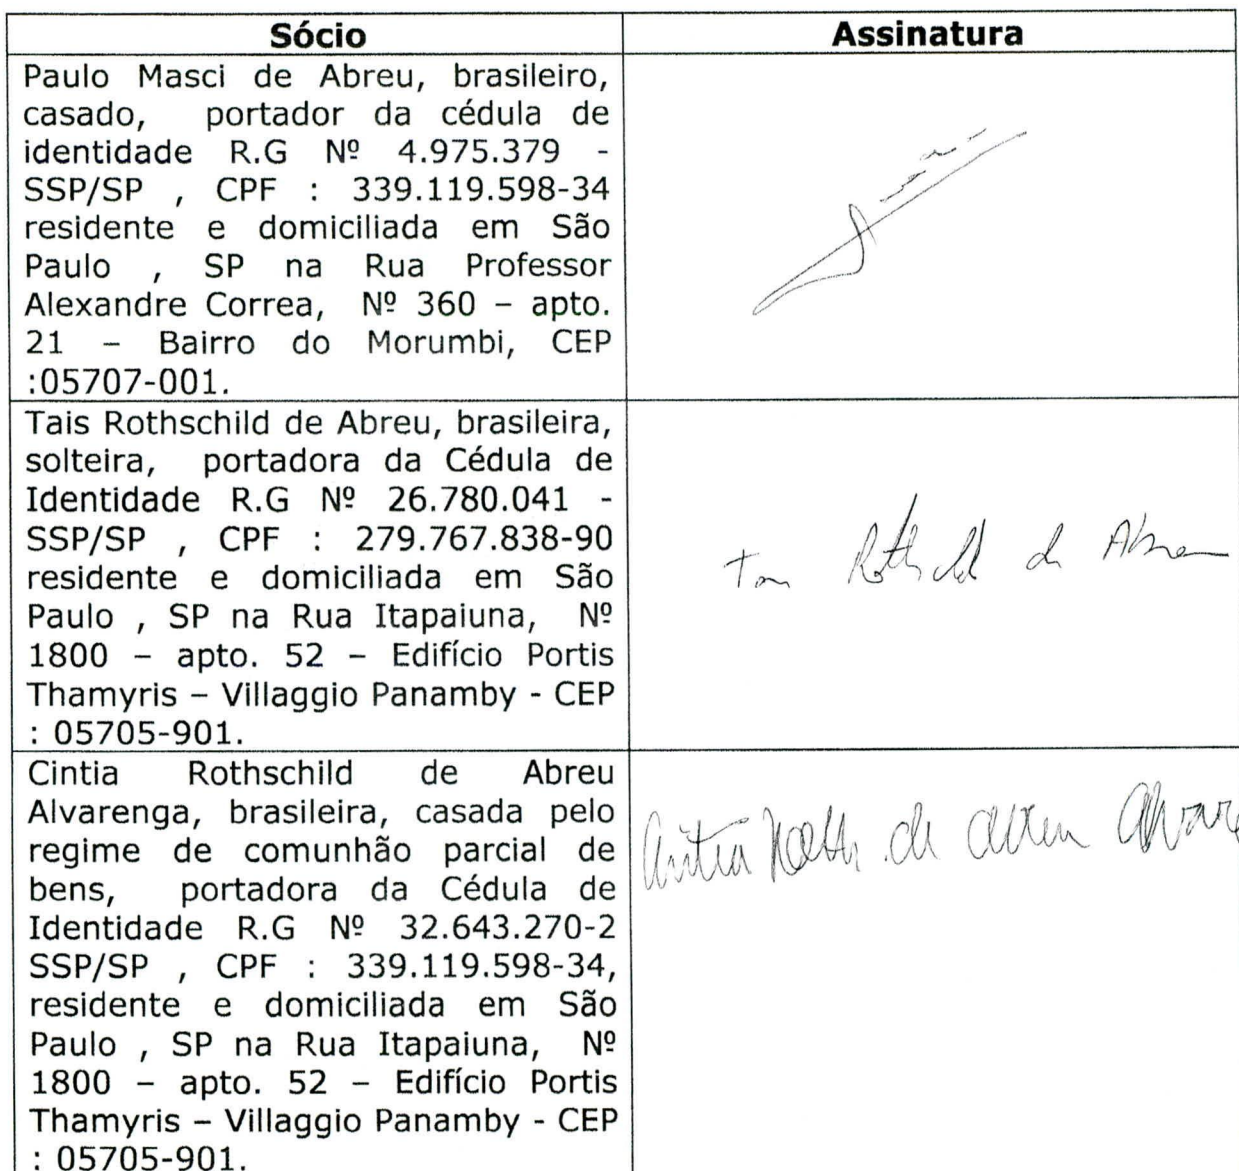 Sócio
Assinatura
Paulo Masci de Abreu, brasileiro,
casado, portador da cédula de
identidade R.G Nº 4.975.379 -
SSP/SP , CPF : 339.119.598-34
residente e domiciliada em São
Paulo , SP na Rua Professor
Alexandre Correa, Nº 360 – apto.
21 – Bairro do Morumbi, CEP
:05707-001.
Tais Rothschild de Abreu, brasileira,
solteira, portadora da Cédula de
Identidade R.G Nº 26.780.041 -
SSP/SP , CPF : 279.767.838-90
residente e domiciliada em São
Paulo , SP na Rua Itapaiuna, Nº
1800 – apto. 52 – Edifício Portis
Thamyris – Villaggio Panamby - CEP
: 05705-901.
Rothschild de Abreu
Cintia Rothschild de Abreu
Alvarenga, brasileira, casada pelo
regime de comunhão parcial de
bens, portadora da Cédula de
Identidade R.G Nº 32.643.270-2
SSP/SP , CPF : 339.119.598-34,
residente e domiciliada em São
Paulo , SP na Rua Itapaiuna, Nº
1800 – apto. 52 – Edifício Portis
Thamyris – Villaggio Panamby - CEP
: 05705-901.
Cintia Roth. de Abreu Alvare